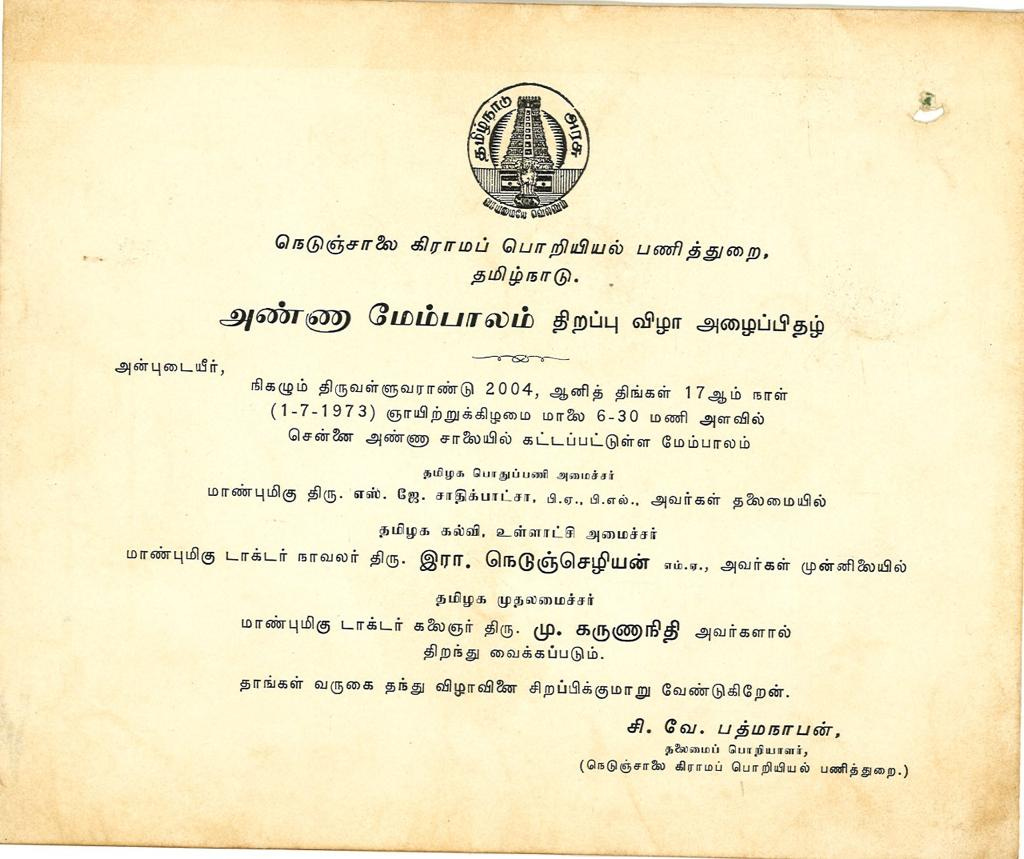 தமிழ்நாடு அரசு
வாய்மையே வெல்லும்
நெடுஞ்சாலை கிராமப் பொறியியல் பணித்துறை,
தமிழ்நாடு.
அண்ணா மேம்பாலம் திறப்பு விழா அழைப்பிதழ்
அன்புடையீர்,
நிகழும் திருவள்ளுவராண்டு 2004, ஆனித் திங்கள் 17ஆம் நாள்
(1-7-1973) ஞாயிற்றுக்கிழமை மாலை 6-30 மணி அளவில்
சென்னை அண்ணா சாலையில் கட்டப்பட்டுள்ள மேம்பாலம்
தமிழக பொதுப்பணி அமைச்சர்
மாண்புமிகு திரு. எஸ். ஜே. சாதிக்பாட்சா, பி.ஏ., பி.எல்., அவர்கள் தலைமையில்
தமிழக கல்வி, உள்ளாட்சி அமைச்சர்
மாண்புமிகு டாக்டர் நாவலர் திரு. இரா. நெடுஞ்செழியன் எம்.ஏ., அவர்கள் முன்னிலையில்
தமிழக முதலமைச்சர்
மாண்புமிகு டாக்டர் கலைஞர் திரு. மு. கருணாநிதி அவர்களால்
திறந்து வைக்கப்படும்.
தாங்கள் வருகை தந்து விழாவினை சிறப்பிக்குமாறு வேண்டுகிறேன்.
சி. வே. பத்மநாபன்,
தலைமைப் பொறியாளர்,
(நெடுஞ்சாலை கிராமப் பொறியியல் பணித்துறை.)